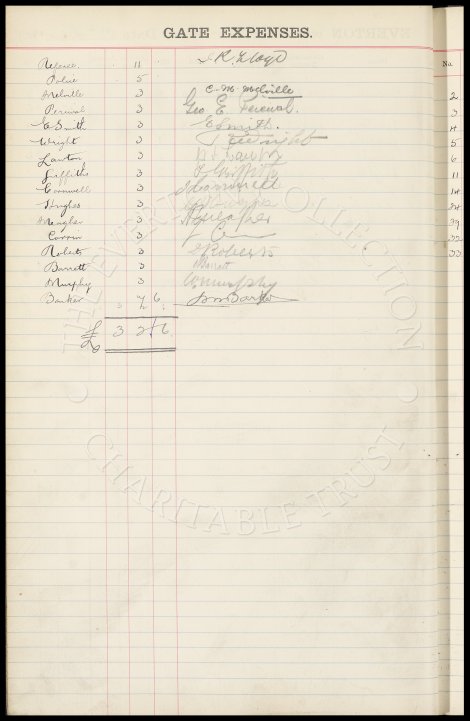 GATE EXPENSES.
No.
Release 11 J. R. Lloyd
Police 5
Melville 3 C. M. Melville
Percival 3 Geo E. Percival.
E Smith 3 E Smith.
Wright 3 Wright
Lawton 3
Griffiths 3 Griffiths
Cornwell 3
Hughes 3
Meagher 3 Meagher
Corrin 3
Roberts 3 Roberts
Barrett 3 Barrett
Murphy 3 Murphy
Barker 7 6 Barker
£ 3 2 6
2
3
4
5
6
11
14
24
29
32
33
THE EVERTON COLLECTION
CHARITABLE TRUST